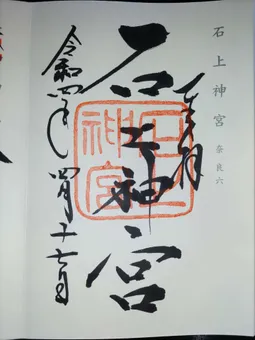 石上神宮 奈良六
石上神宮
石上神宮
令和四年 四月二十七日